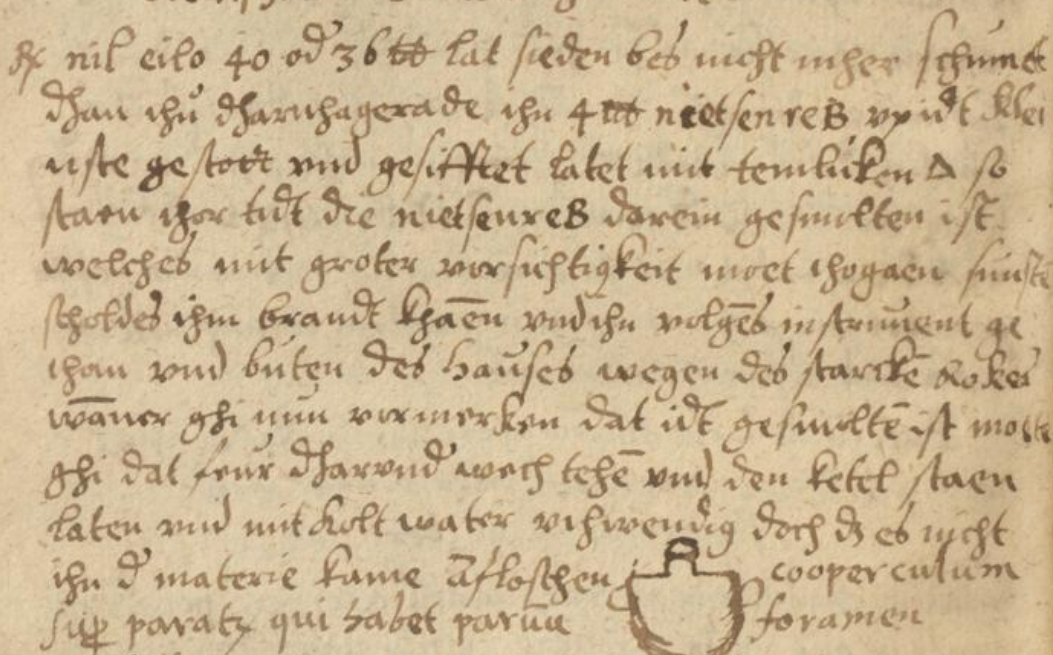 ℞ nil eilo 40 od 36 ℔ lat sieden bes nicht mher schumet
dhan ihn dharnhagerade ihn 4 ℔ nietsenreß vp idt klei
nste gestott vnd gesifftet latet mit temliken △ so
staen ther tidt die nietsenreß darein gesmilten ist
welches mit groter vorsichtigkeit moet thogaen sunste
scholdes ihm brandt khaen vnd ihn volges instrument ge
than vnd buten des hauses wegen des starcke Rokes
waner ghi nun vormerken dat idt gesmilte ist mot
ghi dat feur dharund wech tehe vnd den ketel staen
laten vnd mit kolt water vthwendig doch dz es nicht
ihn d materie kame afloschen cooperculum
sup paratz qui habet parūu foramen